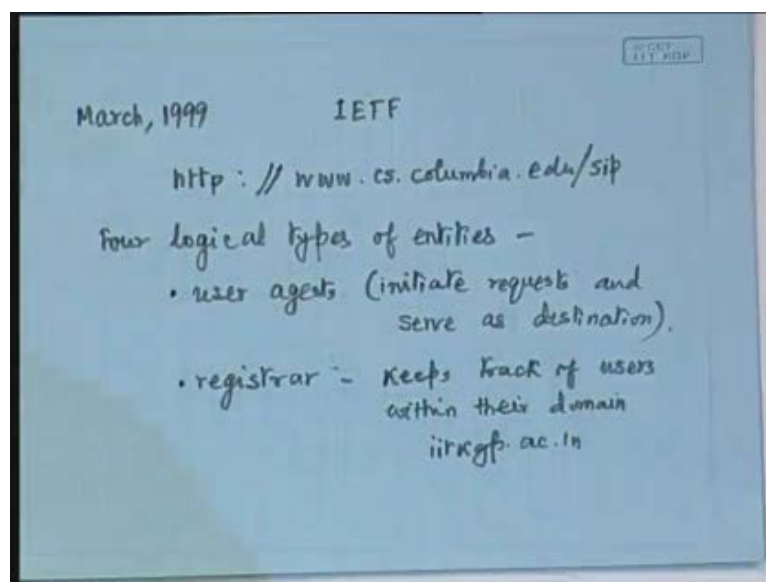 March, 1999 IETF
http : // www . cs . columbia . edu / sip
Four logical types of entities -
• user agents (initiate requests and
serve as destination).
• registrar :- Keeps track of users
within their domain
iitkgp. ac. in